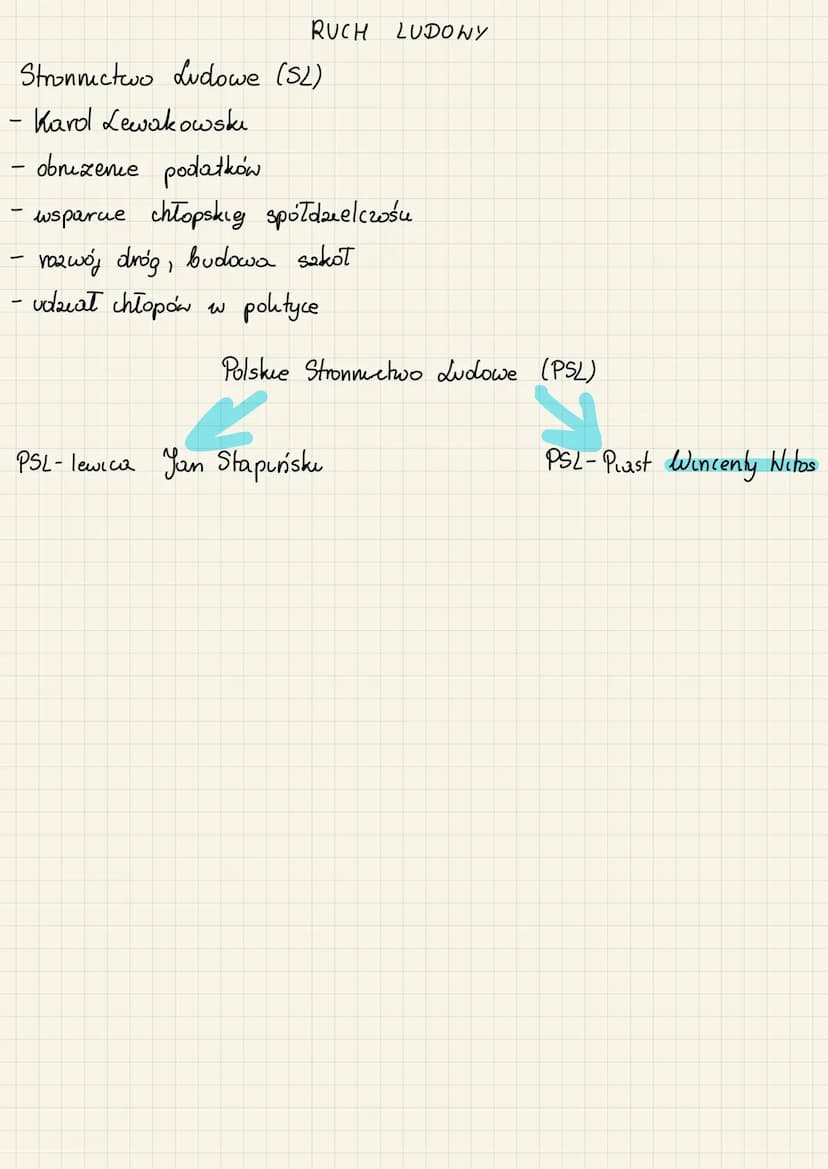 RUCH LUDOWY
Stronnictwo Ludowe (SL)
- Karol Lewakowski
- obniżenie podatków
- wsparcie chłopskiej spółdzielczości
- rozwój dróg, budowa szkół
- udział chłopów w polityce
Polskie Stronnictwo Ludowe (PSL)
PSL-lewica Jan Stapiński PSL-Piast Wincenty Witos